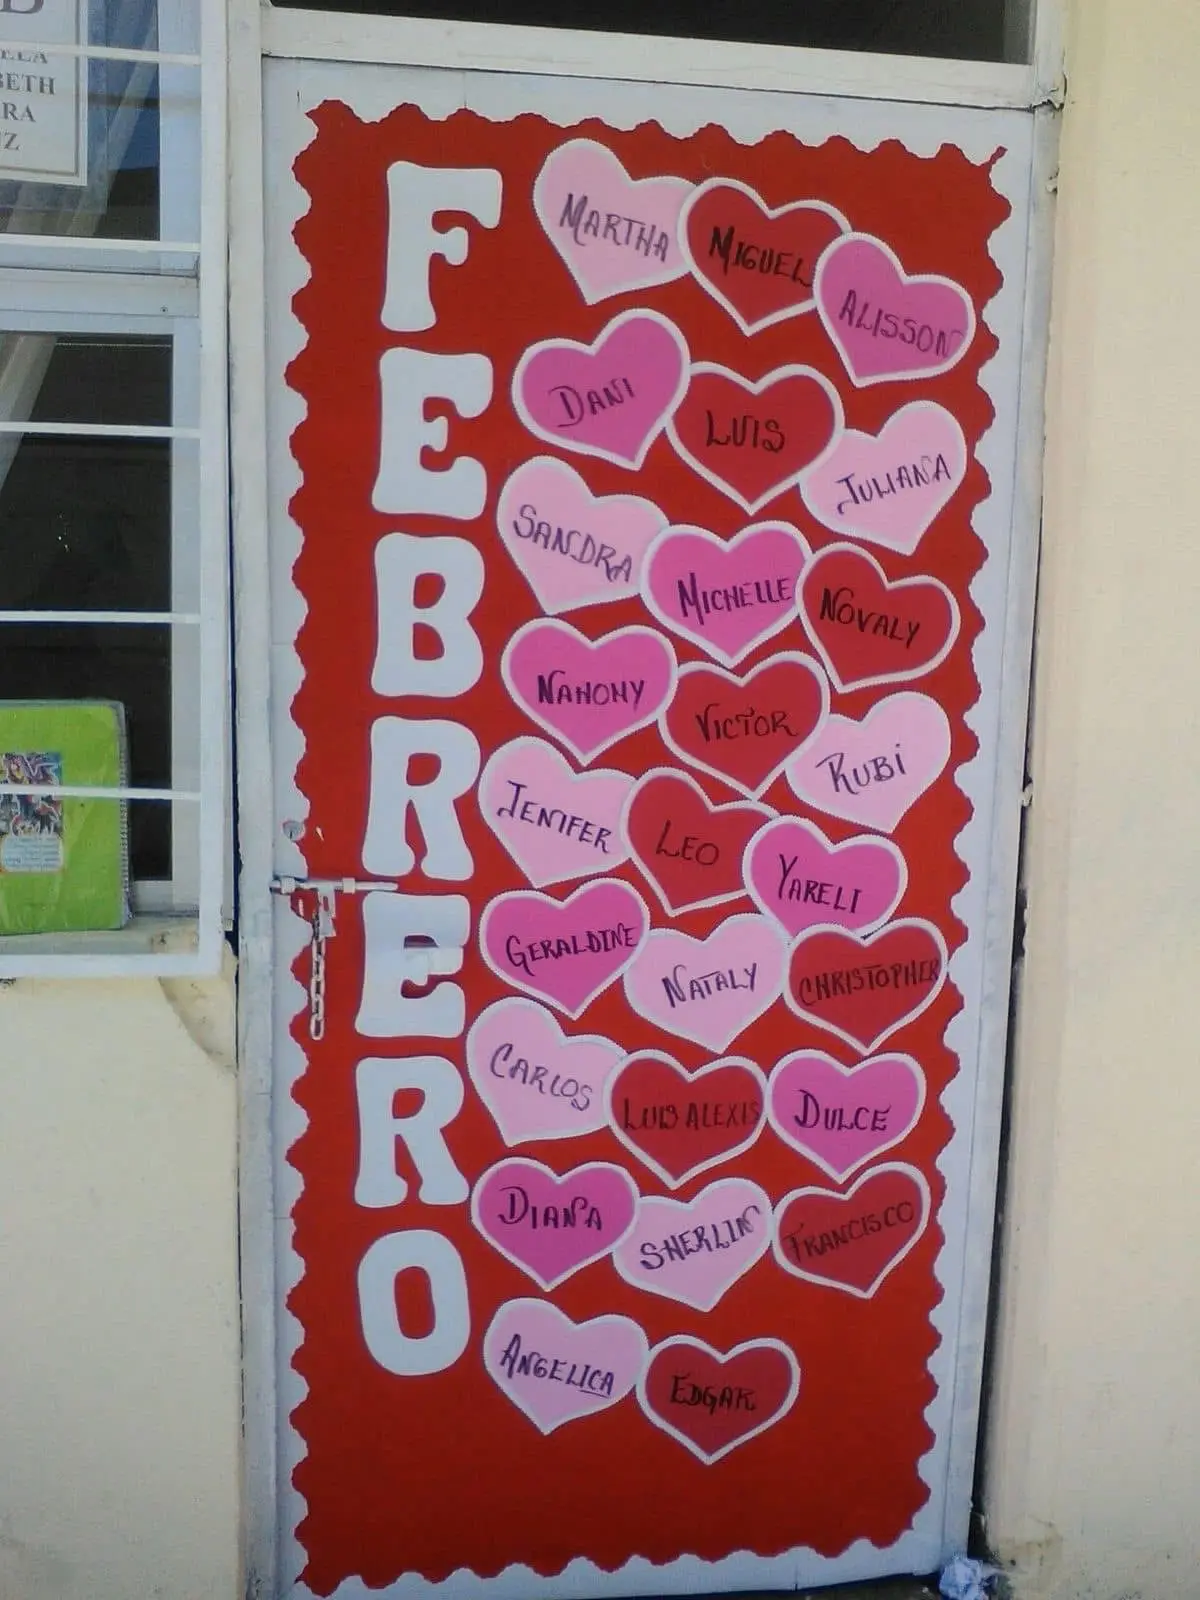 BETH
RA
FEBRERO
MARTHA
MIGUEL
ALISSON
DANI
LUIS
JULIANA
SANDRA
MICHELLE
NOVALY
NAHOMY
VICTOR
RUBi
JENIFER
LEO
YARELI
GERALDINE
NATALY
CHRISTOPHER
CARLOS
LUIS ALEXIS
DULCE
DIANA
SHERLIN
FRANCISCO
ANGELICA
EDGAR